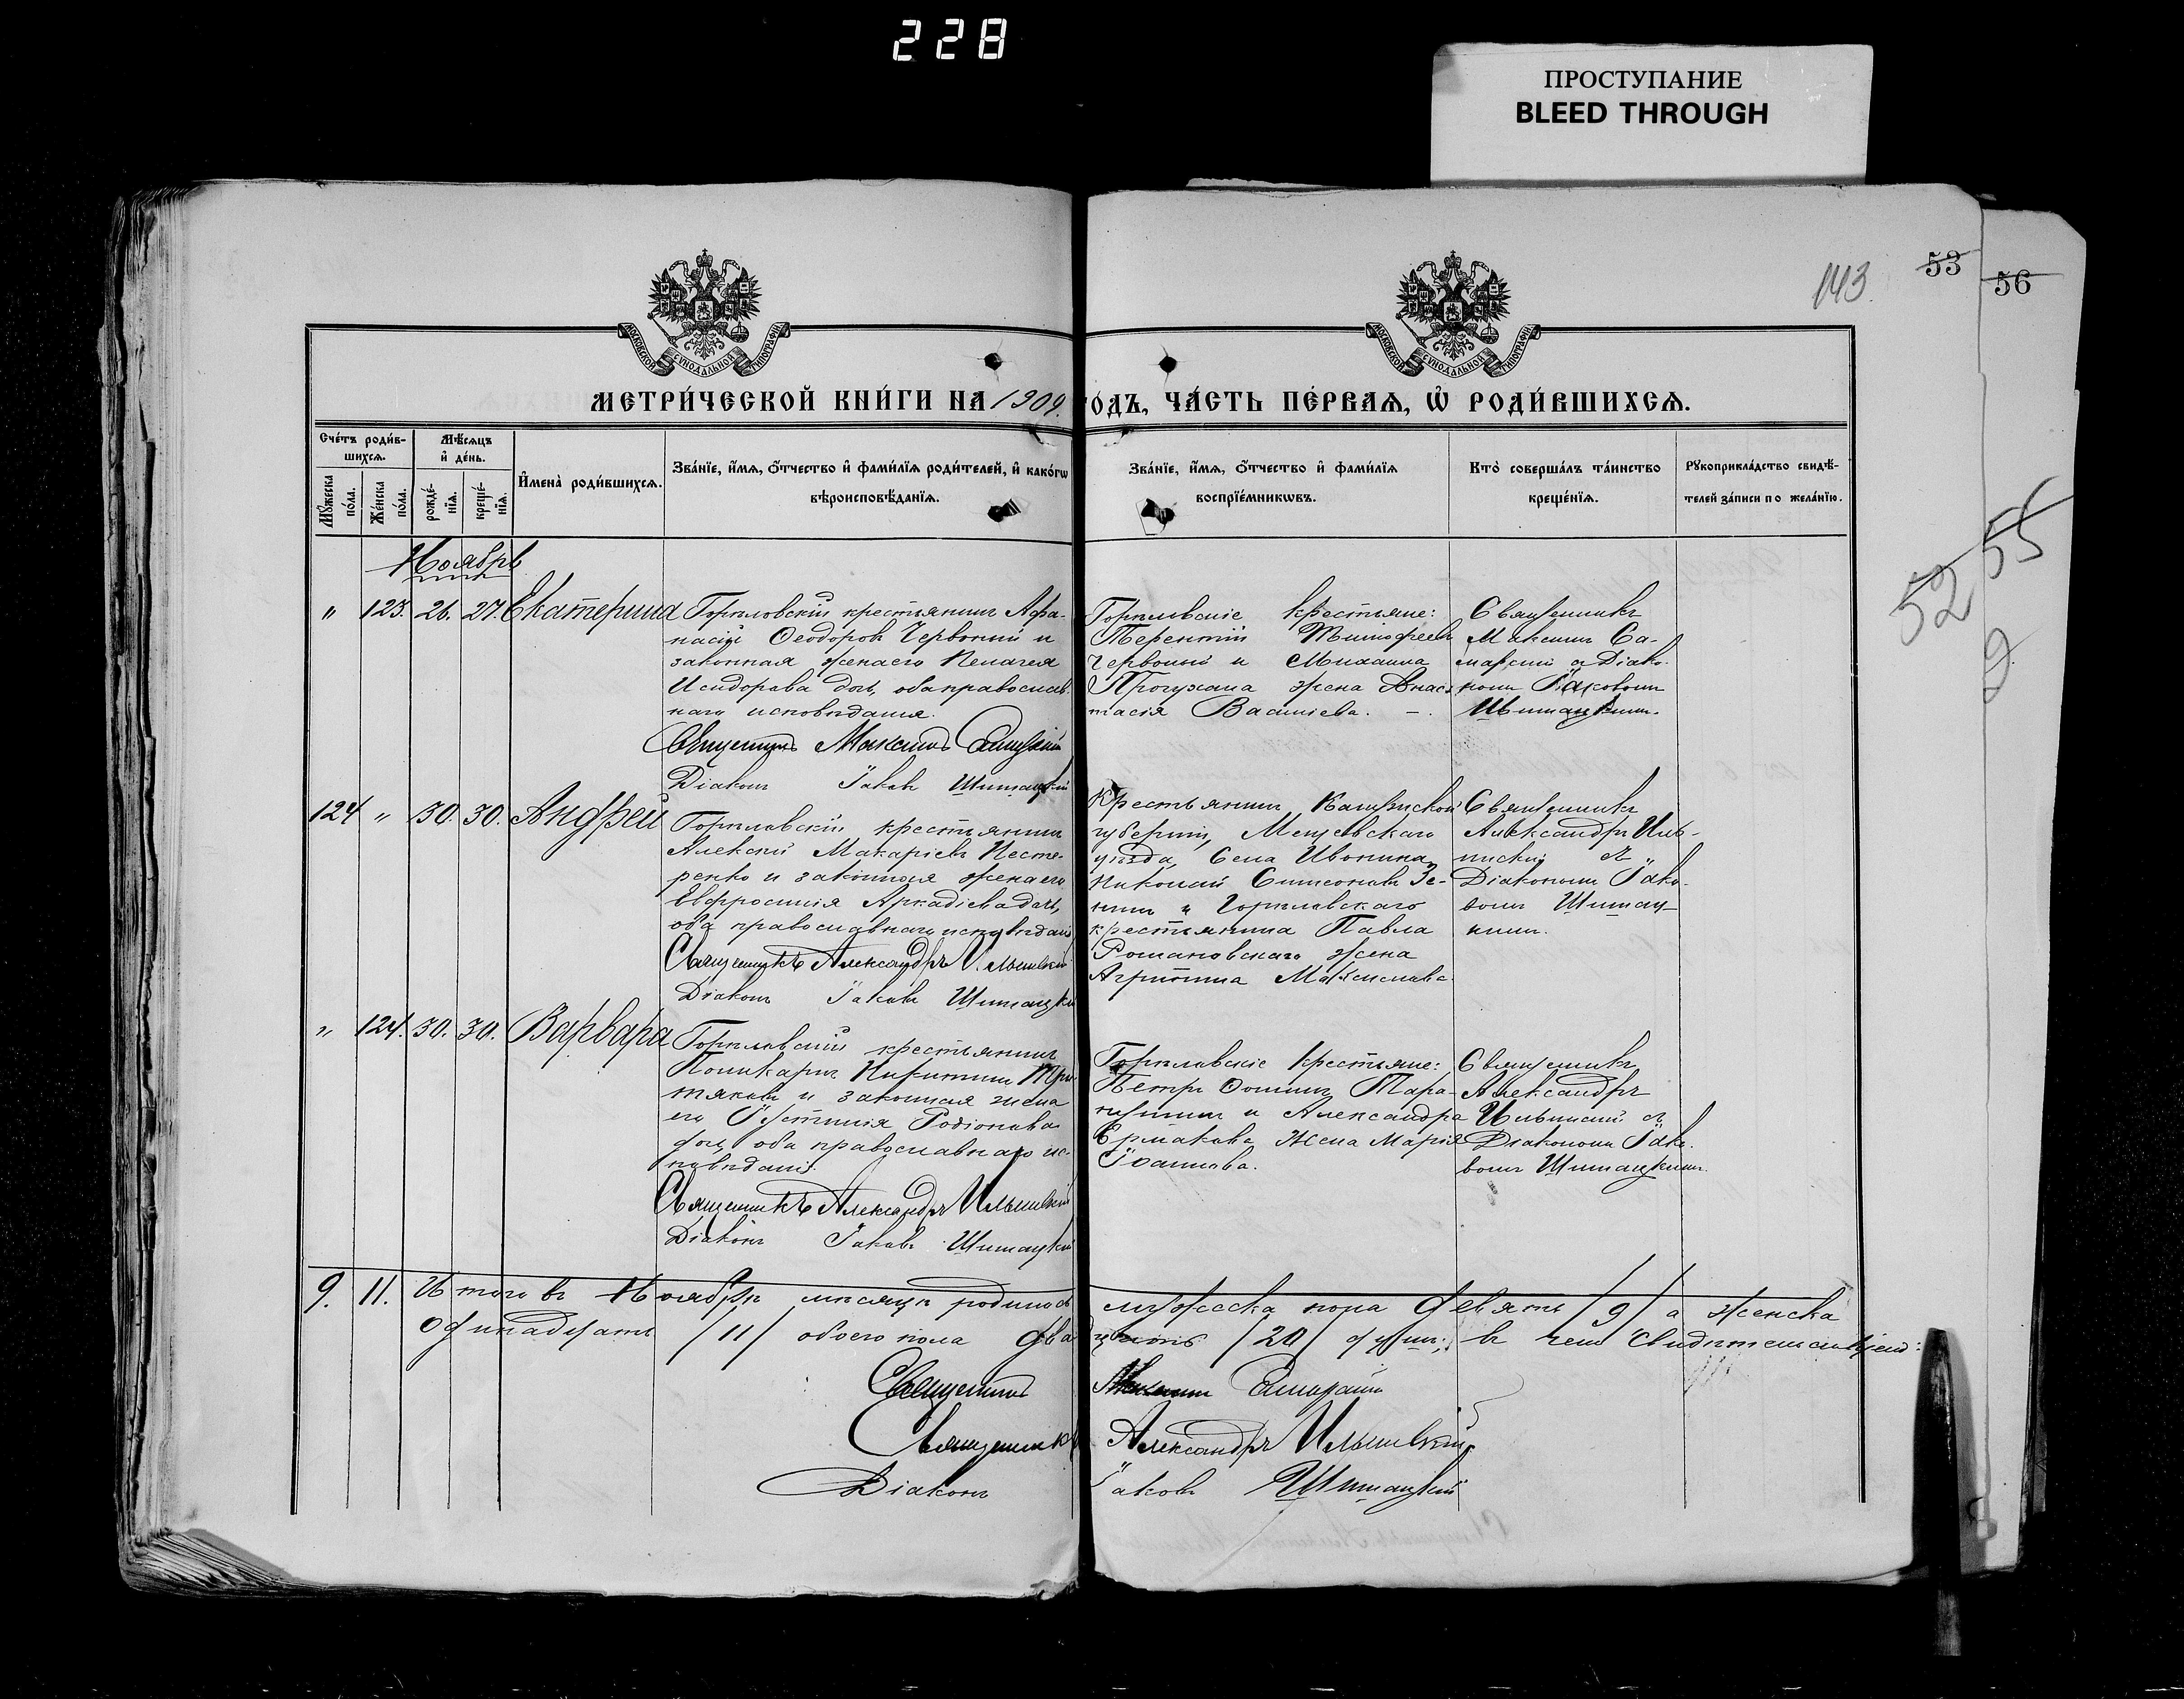 228
ПРОСТУПАНИЕ
BLEED THROUGH
143.
53
56
52
55
2
МОСКОВСКОЙ СѴНОДАЛЬНОЙ ТИПОГРАФІИ
МОСКОВСКОЙ СѴНОДАЛЬНОЙ ТИПОГРАФІИ
МЕТРИ́ЧЕСКОЙ КНИ́ГИ НА 1909 ГО́ДЪ, ЧА́СТЬ ПЕ́РВАѦ, Ѡ҆ РОДИ́ВШИХСѦ.
Сче́тъ роди́в-
шихсѧ.
Мѣ́сѧцъ
и҆ де́нь.
Мꙋ́жеска
по́ла.
Же́нска
по́ла.
рожде́-
нїѧ.
креще́-
нїѧ.
И҆мена̀ роди́вшихсѧ.
Зва́нїе, и҆́мѧ, ѻ҆́тчество и҆ фами́лїѧ роди́телей, и҆ како́гѡ
вѣроисповѣ́данїѧ.
Зва́нїе, и҆́мѧ, ѻ҆́тчество и҆ фами́лїѧ
воспрїе́мникѡвъ.
Кто̀ соверша́лъ та́инство
креще́нїѧ.
Рꙋкоприкла́дство свидѣ́-
телей за́писи по жела́нїю.
Ноябрь
" 123. 26. 27. Екатерина
Гориловскій крестьянинъ Афа-
насій Ѳеодоровъ Червоный и
законная жена его Пелагея
Исидорова дочь, оба православ-
наго исповѣданія.
Священникъ Максимъ
Діаконъ Іаковъ Шишацкій
Гориловскіе крестьяне:
Терентій Тимофеевъ
Червоный и Михаила
жена Анас-
тасія Василіева. –.
Священникъ
Максимъ Са-
марскій съ Діако-
номъ Іаковомъ
Шишацкимъ.
124 " 30. 30. Андрей
Гориловскій крестьянинъ
Алексій Макаріевъ Несте-
ренко и законная жена его
Евфросинія Аркадіева дочь,
оба православнаго исповѣданія
Священникъ Александръ Ильинскій
Діаконъ Іаковъ Шишацкій
Крестьянинъ Калужской
губерніи, Мещовскаго
уѣзда, Села Ивонина
Николай Симеоновъ Зе-
нинъ и Гориловскаго
крестьянина Павла
Романовскаго жена
Агриппина
Священникъ
Александръ Иль-
инскій съ
Діакономъ Іако-
вомъ Шишац-
кимъ.
" 124. 30. 30. Варвара
Гориловскій крестьянинъ
Поликарпъ Никитинъ Тре-
тяковъ и законная жена
его Іустинія Родіонова
дочь, оба православнаго ис-
повѣданія.
Священникъ Александръ Ильинскій
Діаконъ Іаковъ Шишацкій
Гориловскіе крестьяне:
Петръ Ѳоминъ Тара-
и Александра
Ермакова жена Марія
Іоаннова.
Священникъ
Александръ
Ильинскій съ
Діакономъ Іако-
вомъ Шишацкимъ.
9. 11. Итого въ Ноябрѣ мѣсяцѣ родилось мужеска пола девять /9/ а женска
одинадцать /11/ обоего пола двадцать /20/ душъ; въ чемъ свидѣтельствуемъ:
Священникъ Максимъ Самарскій
Священникъ Александръ Ильинскій
Діаконъ Іаковъ Шишацкій